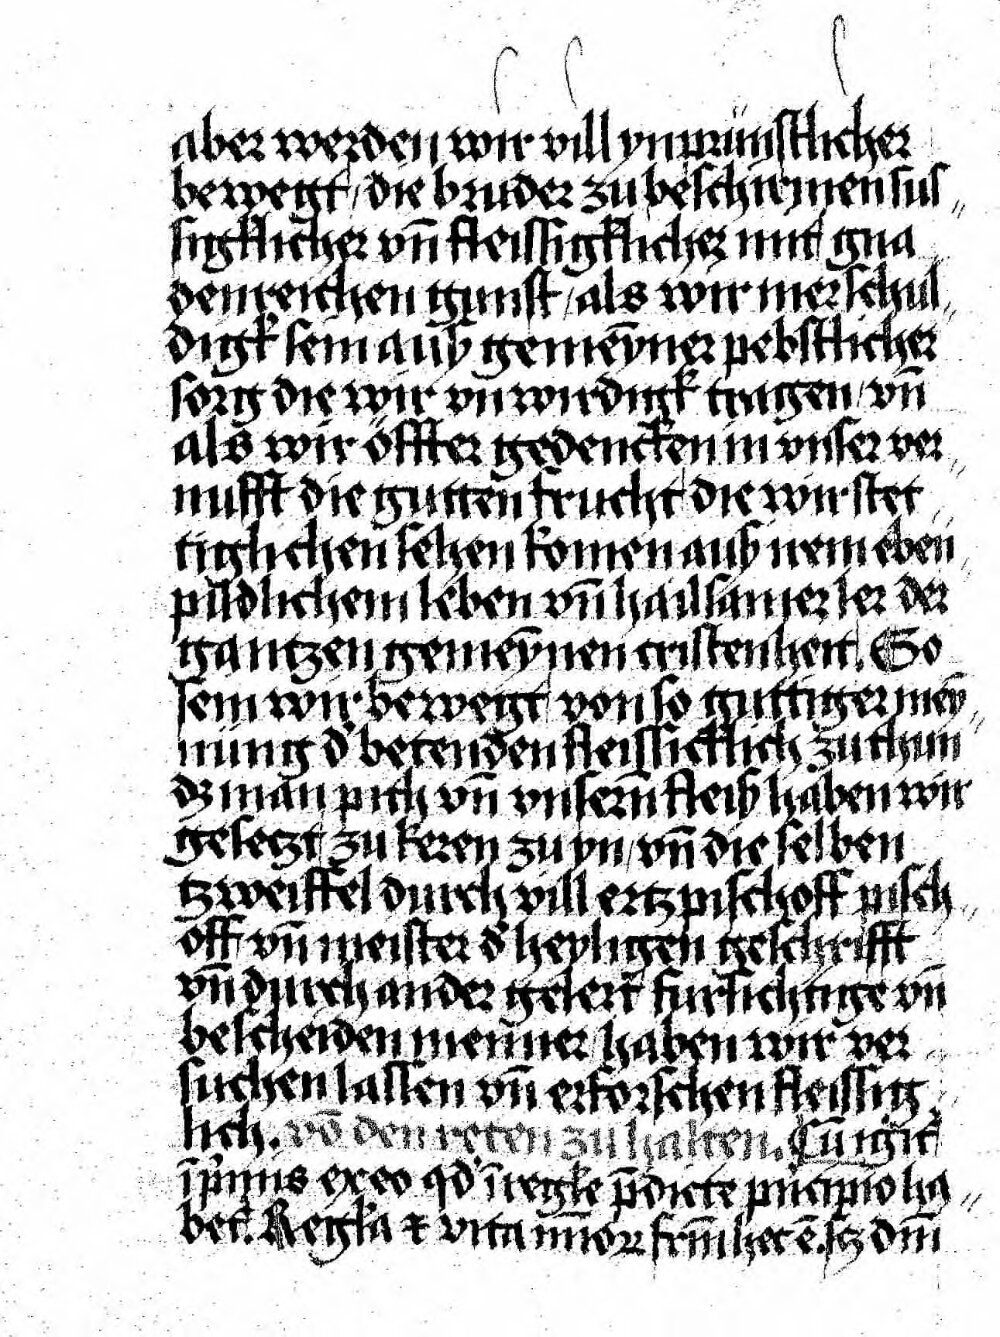 aber werden wir vill ynprünstlicher
bewegt / die bruder zu beschirmen sus〃
sigklicher vn̄ fleissigklicher mit gna
denreichen gunst / als wir mer schul〃
digk sein auß gemeȳner pebstlicher
sorg die wir vnwirdigk tragen / vn̄
als wir öffter gedencken in vnser ver〃
nufft die gutten frucht die wir stet
tiglichen sehen komen auß irem eben〃
pildlichem leben vn̄ hailsamer ler der
gantzen gemeȳnen cristenheit. So
sein wir bewegt von so guttiger meȳ〃
nung d' betenden fleissicklich zu thun
dz man pith vn̄ vnsern̄ fleiß haben wir
gesetzt zu keren zu yn / vn̄ die selben
tzweiffel durch vill ertzpischoff pisch〃
off vn̄ meister d' heyligen geschrifft
vn̄ durch ander gelert' fursichtige vn̄
bescheiden menner / haben wir ver〃
suchen lassen vn̄ erforschen fleissig
lich. vō den reten zu halten. Cū igit'
ī p'mis exeo qd' ī regle p̄dicte pn'cipio ha〃
bet'. Regla ⁊ vita mīorꝝ frm̄ hec ē. sꝫ dnī